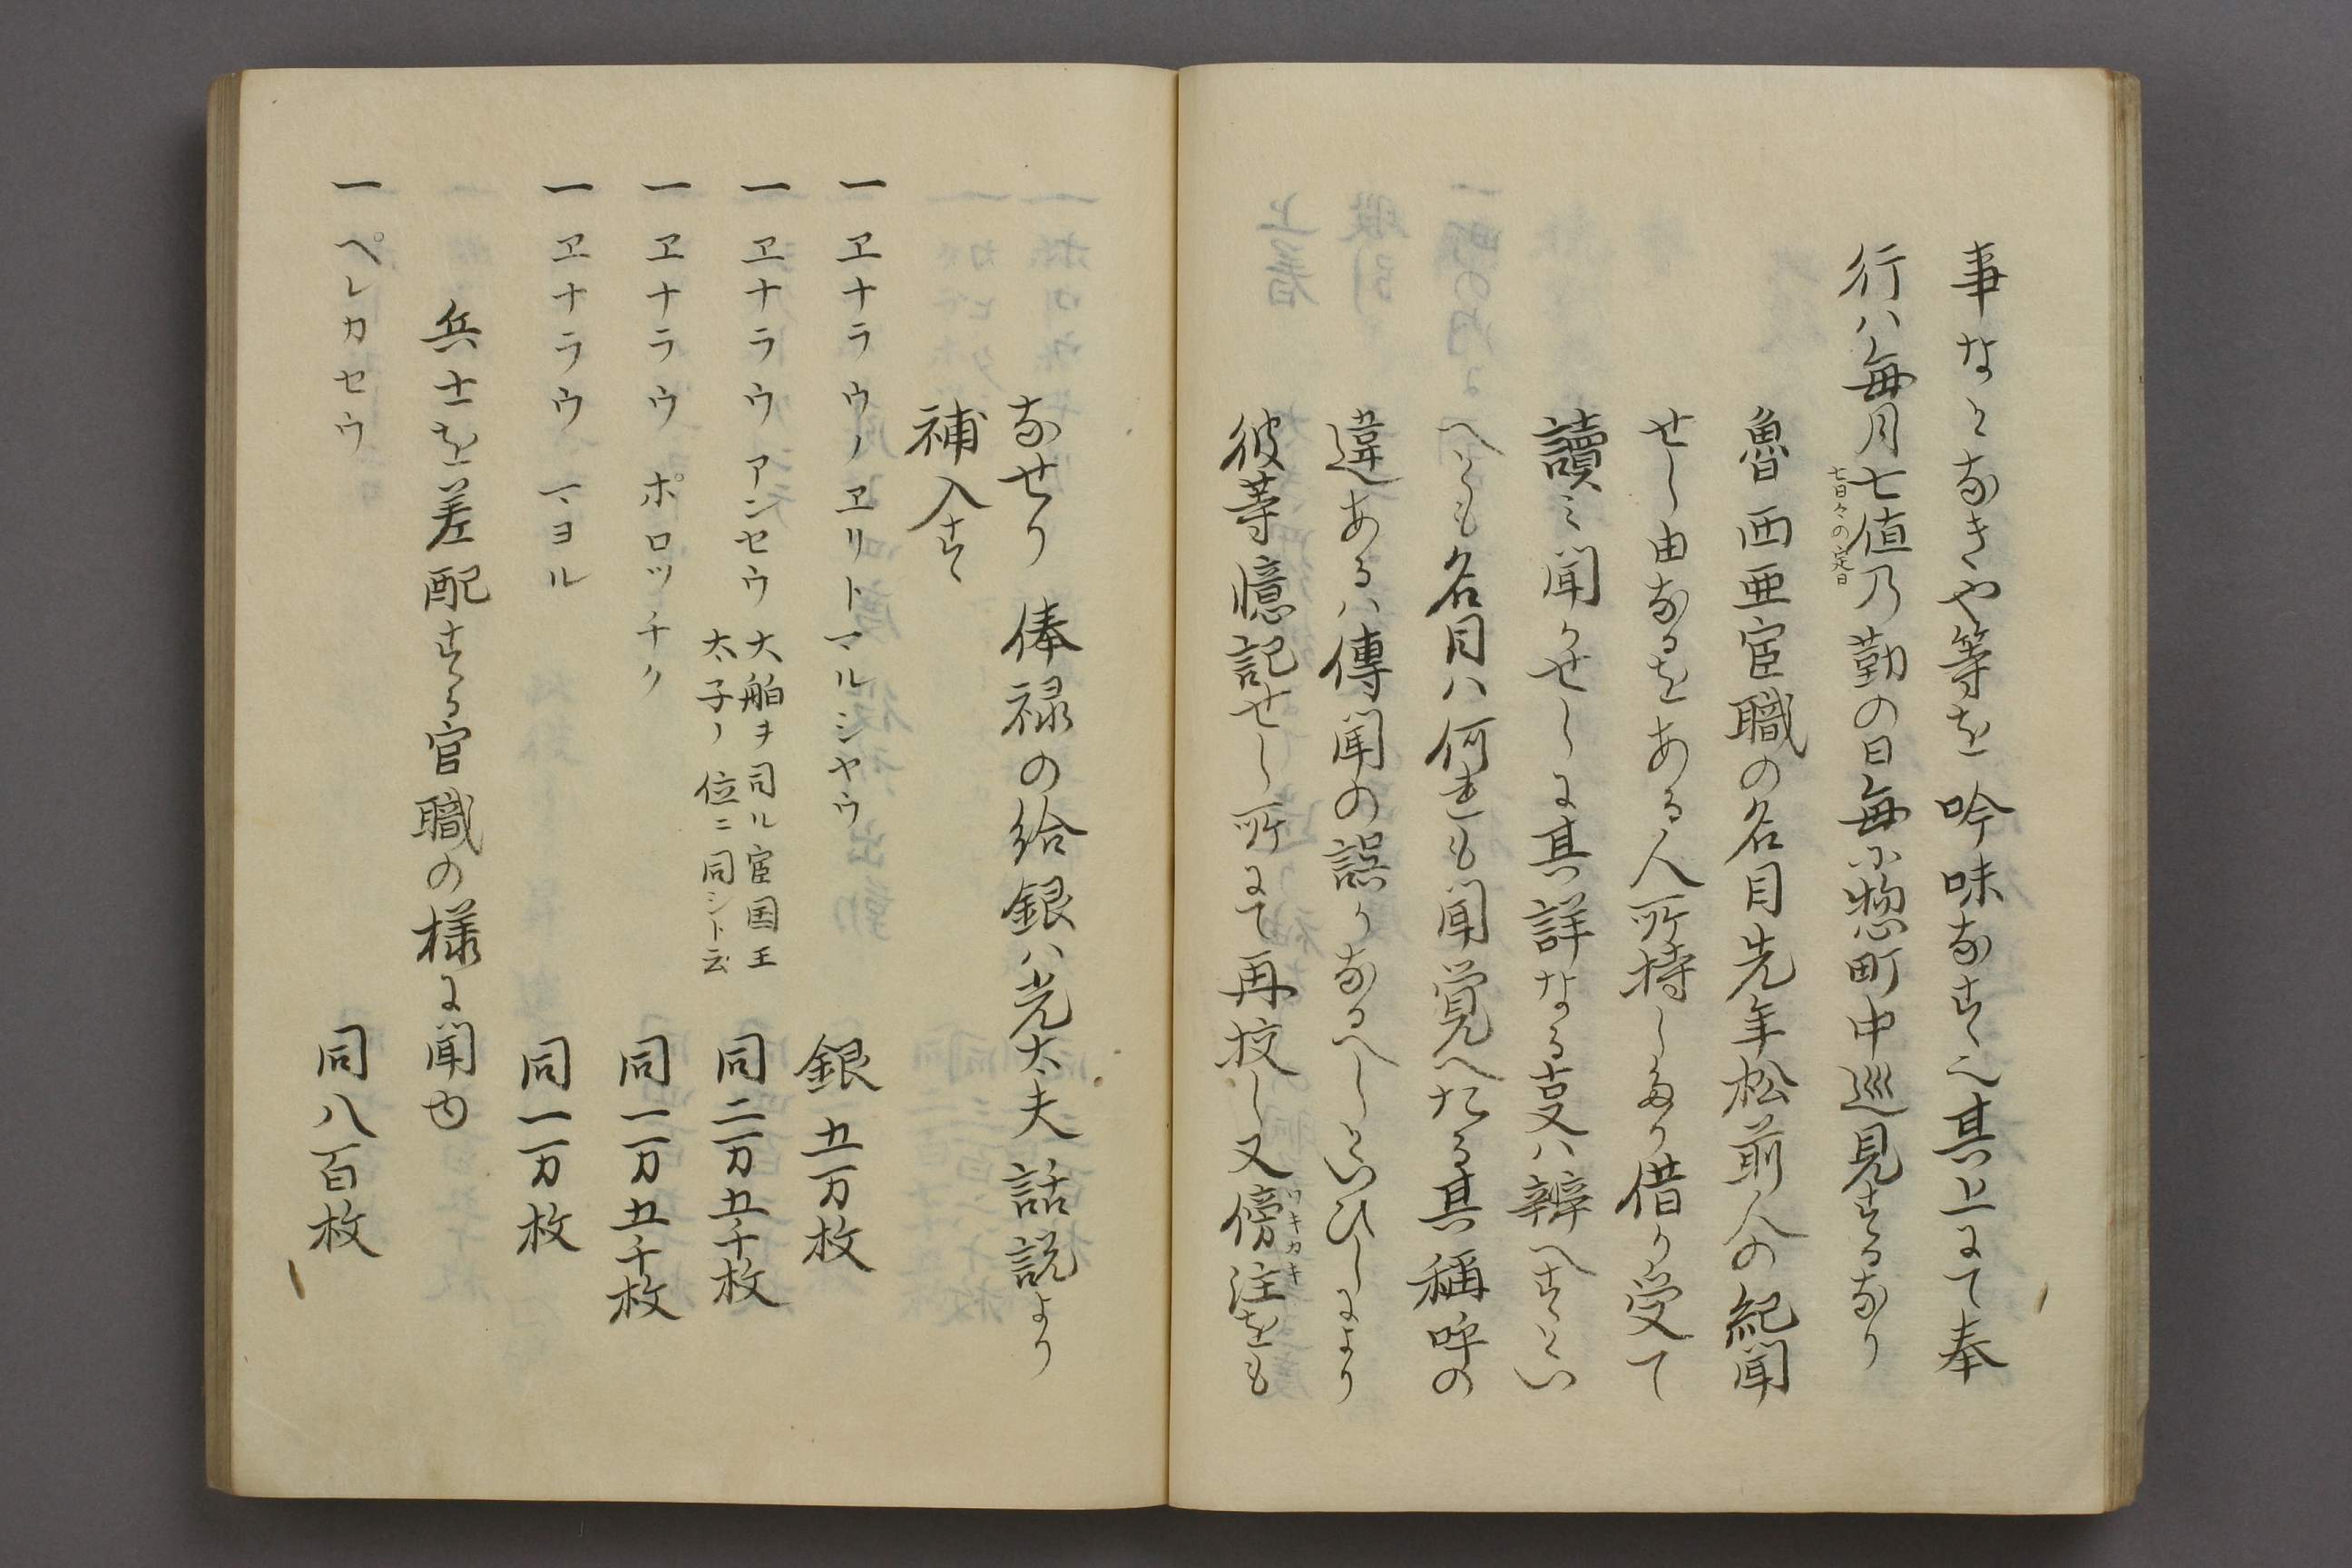 事なくなきや等を吟味なすへ其上にて奉
行ハ毎月七値乃勤の日毎ニ惣町中巡見するなり
七日々の定日
魯西亜宦職の名目先年松前人の紀聞
せし由なるをある人所持しあり借り受て
讀ミ聞カせしに其詳なる㕝ハ辨へすとい
へとも名目ハ何れも聞覚へたる其稱呼の
違あるハ傳聞の誤りなるへしといひしにより
彼等憶記せし所にて再挍し又傍注をも
ワキカキ
なせり 俸禄の給銀ハ光太夫話説より
補入す
一ヱナラウノヱリトマルシヤウ 銀五万枚
一ヱナラウアンセウ 大舶ヲ司ル宦国王
太子ノ位ニ同シト云 同二万五千枚
一ヱナラウポロツチク 同一万五千枚
一ヱナラウマヨル 同一万枚
兵士を差配する官職の様に聞ゆ
一ペレカセウ 同八百枚